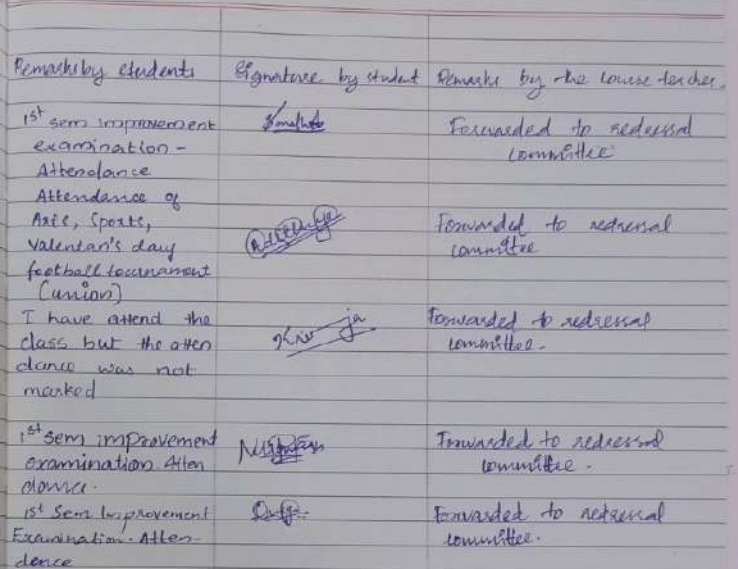 Remarks by students
Signature by student
Remarks by the course teacher.
1st sem improvement
examination -
Attendance
Forwarded to redressal
committee
Attendance of
Arts, Sports,
Valentan's day
football tournament
(union)
Forwarded to redressal
committee
I have attend the
class but the atten
dance was not
marked
Forwarded to redressal
committee.
1st sem improvement
examination Atten
dance.
Forwarded to redressal
committee.
1st Sem Improvement
Examination. Atten-
dence
Forwarded to redressal
committee.